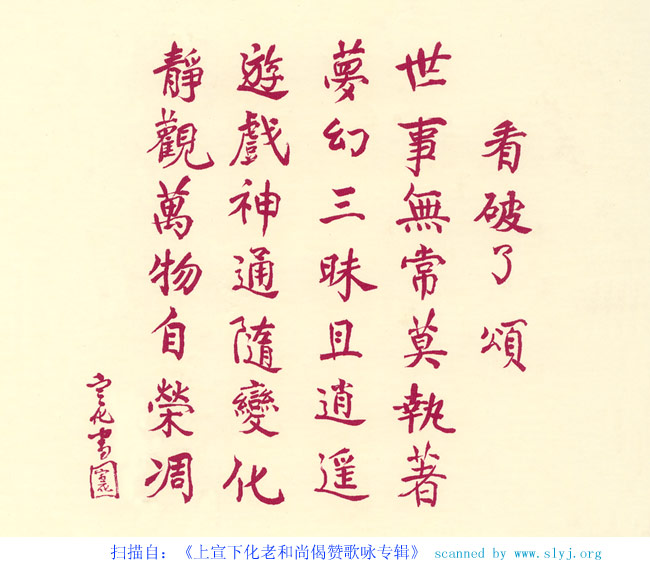 看破了頌
世事無常莫執著
夢幻三昧且逍遥
遊戲神通隨變化
靜觀萬物自榮凋
宣化書
宣化
扫描自：《上宣下化老和尚偈赞歌咏专辑》 scanned by www.slyj.org